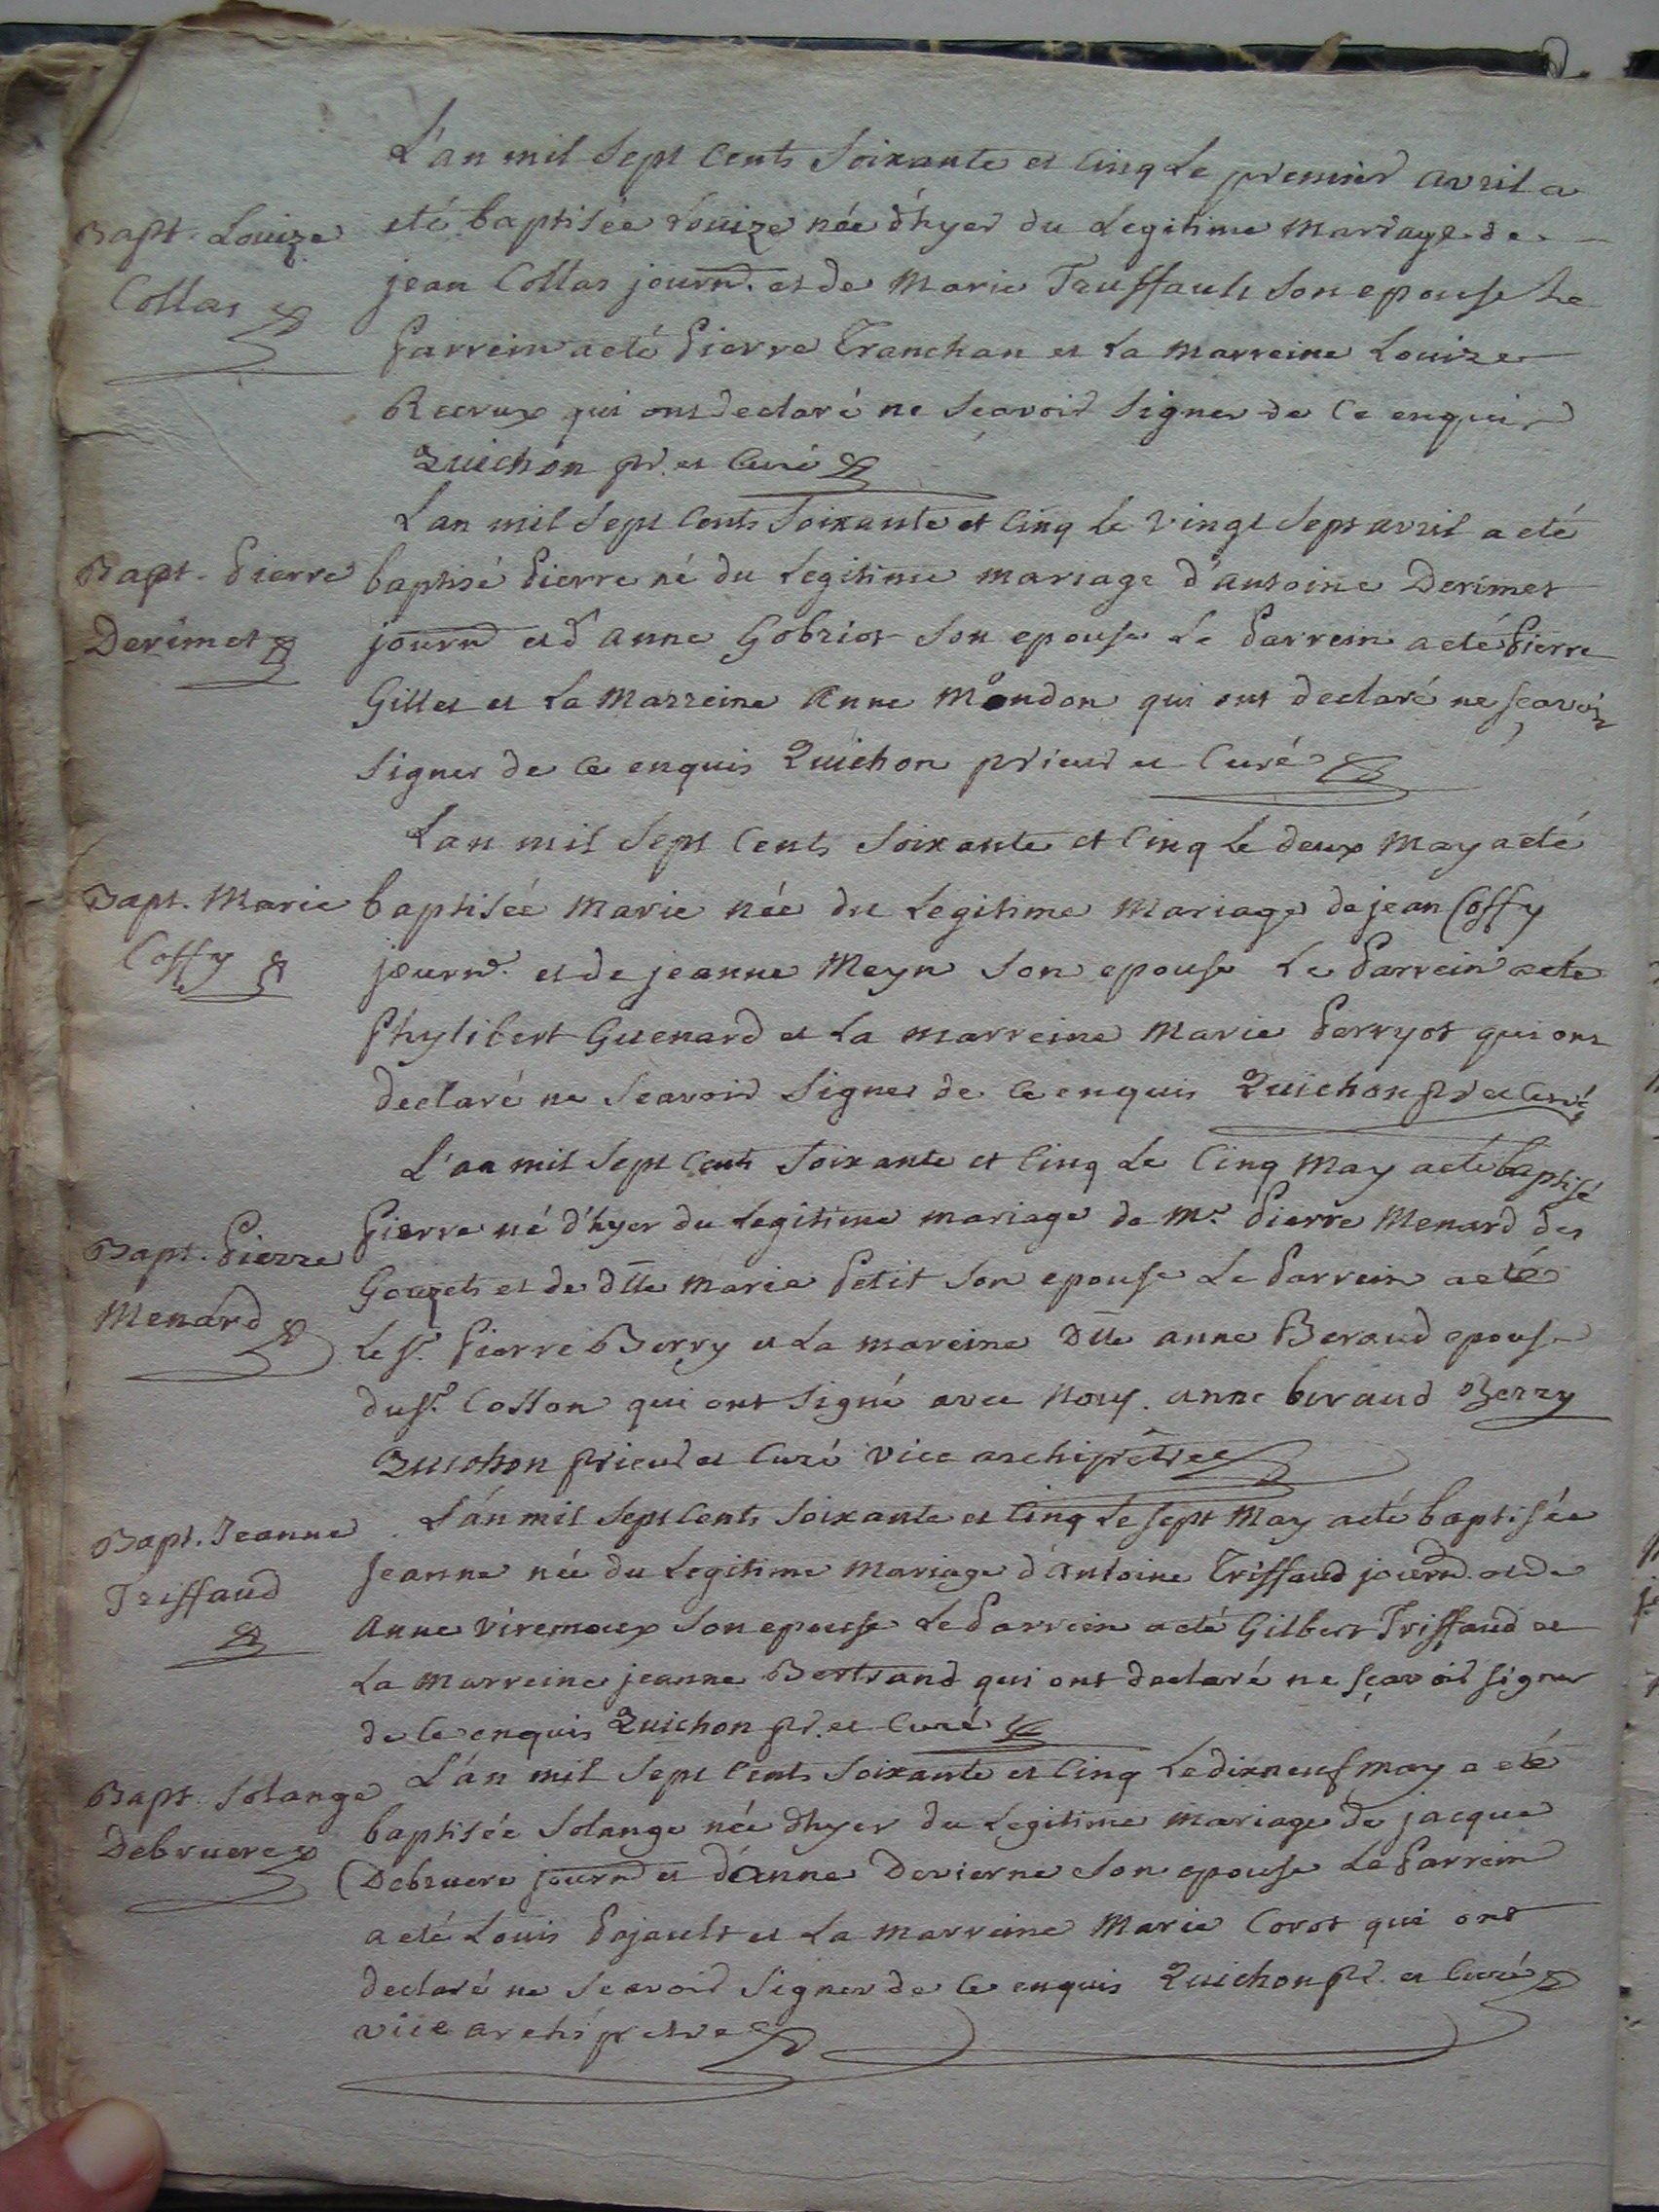 L'an mil Sept Cents Soixante et Cinq Le premier avril a
Bapt. Louize eté baptisée Louize née d'hyer du Legitime Mariage de
Collas jean Collas journr. et de Marie Truffault Son epouse Le
Parrein a eté Pierre Tranchan et La marreine Louize
qui ont declaré ne Scavoir Signer de Ce enquis
Quichon pr. et Curé
Lan mil Sept Cents Soixante et Cinq Le vingt Sept avril a eté
Bapt. Pierre baptisé Pierre né du Legitime mariage d'antoine Derimet
Derimet journr et d'anne Gobriot Son epouse Le Parrein a eté Pierre
Gilles et La Marreine Anne Mondon qui ont declaré ne sçavoir
Signer de Ce enquis Quichon prieur et Curé
Lan mil Sept Cents Soixante et Cinq Le deux May a eté
Bapt. Marie baptisée Marie née du Legitime Mariage de jean Coffy
Coffy journr. et de jeanne Meyn Son epouse Le Parrein a eté
Phylibert Guenard et La marreine Marie Perryot qui ont
declaré ne Scavoir Signer de Ce enquis Quichon pr et Curé
L'an mil Sept Cents Soixante et Cinq Le Cinq May a eté baptisé
Bapt. Pierre Pierre né d'hyer du Legitime mariage de Mr. Pierre Menard des
Menard Gouzets et de dlle Marie Petit Son epouse Le Parrein a eté
Le Sr. Pierre Berry et La mareine Dlle anne Beraud epouse
du Sr. Cosson qui ont Signé avec Nous. anne beraud Berry
Quichon prieur et Curé vice archiprêtre
L'an mil Sept Cents Soixante et Cinq Le Sept May a eté baptisée
Bapt. Jeanne Jeanne née du Legitime Mariage d'Antoine Triffaud journr. et de
Triffaud Anne Viremoux Son epouse Le Parrein a eté Gilbert Triffaud et
La Marreine jeanne Bertrand qui ont declaré ne sçavoir signer
de Ce enquis Quichon pr. et Curé
L'an mil Sept Cents Soixante et Cinq Le dixneuf may a eté
Bapt. Solange baptisée Solange née d'hyer du Legitime Mariage de jacque
Debruere Debruere journr et d'anne Devierne Son epouse Le Parrein
a eté Louis Pajault et La marreine Marie Corot qui ont
declaré ne Scavoir Signer de Ce enquis Quichon pr. et Curé
vice archiprestre